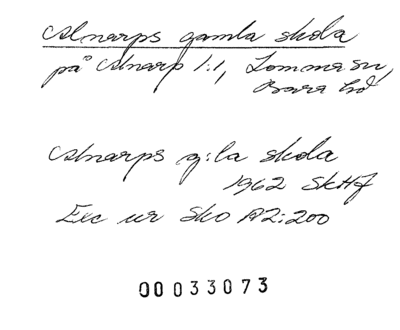 Alnarps gamla skola
på Alnarp 1:1, Lomma sn,
Bara hd
Alnarps g:la skola
1962 SkHf
Exc ur Sko A2:200
00033073